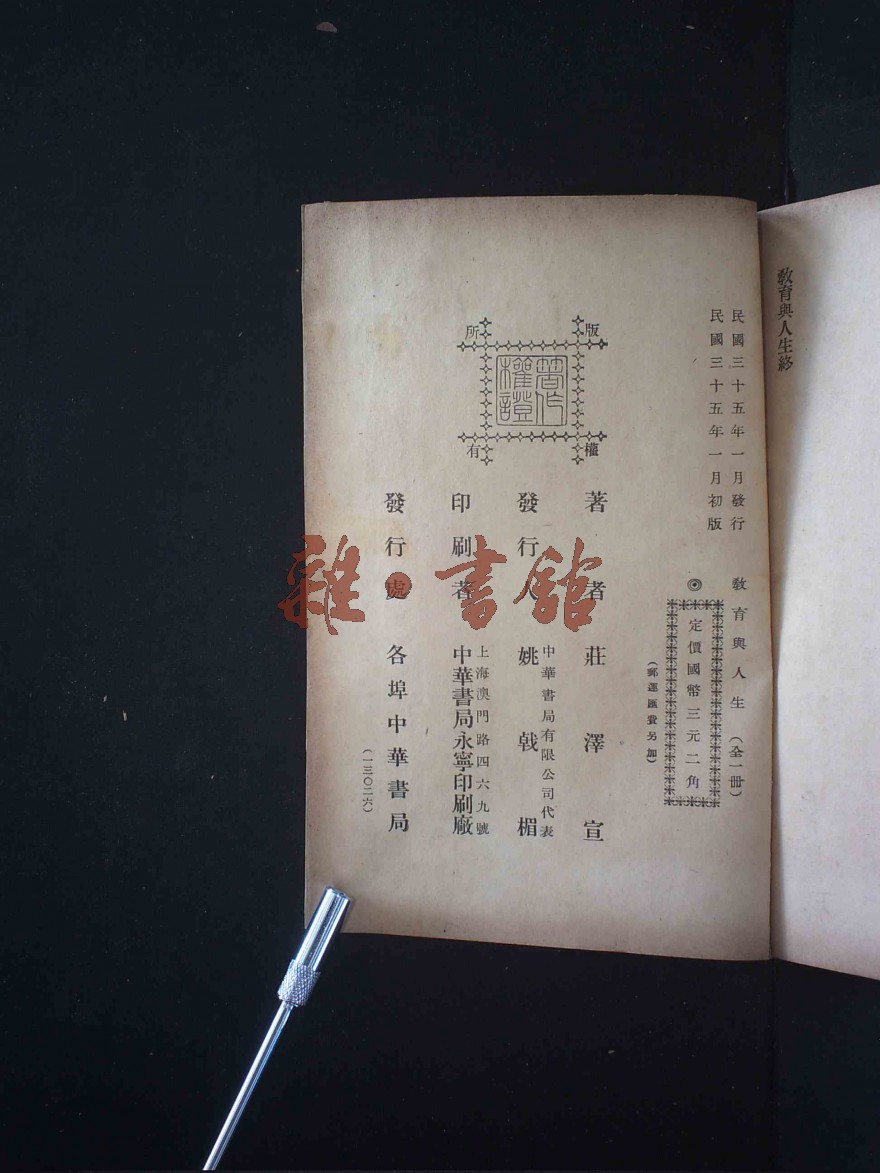 教育與人生終
民國三十五年一月發行
民國三十五年一月初版
教育與人生（全一冊）
◎定價國幣三元二角
（郵運匯費另加）
版權所有
著作權證
著者 莊澤宣
發行人 中華書局有限公司代表 姚戟楣
印刷者 上海澳門路四六九號 中華書局永寧印刷廠
發行處 各埠中華書局
（一三〇二六）
雜·書館